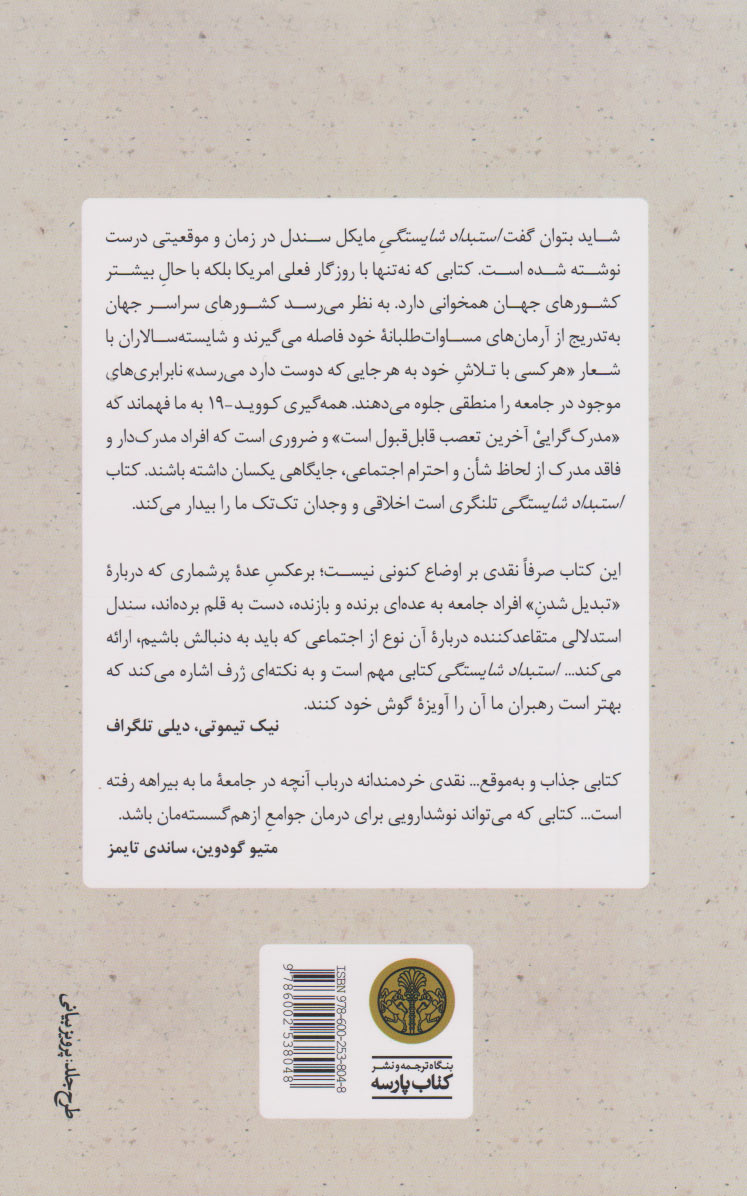 شاید بتوان گفت استبداد شایستگیِ مایکل سندل در زمان و موقعیتی درست
نوشته شده است. کتابی که نه‌تنها با روزگار فعلی امریکا بلکه با حالِ بیشتر
کشورهای جهان همخوانی دارد. به نظر می‌رسد کشورهای سراسر جهان
به‌تدریج از آرمان‌های مساوات‌طلبانهٔ خود فاصله می‌گیرند و شایسته‌سالاران با
شعار «هرکسی با تلاشِ خود به هر جایی که دوست دارد می‌رسد» نابرابری‌های
موجود در جامعه را منطقی جلوه می‌دهند. همه‌گیری کووید-۱۹ به ما فهماند که
«مدرک‌گراییْ آخرین تعصب قابل‌قبول است» و ضروری است که افراد مدرک‌دار و
فاقد مدرک از لحاظ شأن و احترام اجتماعی، جایگاهی یکسان داشته باشند. کتاب
استبداد شایستگی تلنگری است اخلاقی و وجدان تک‌تک ما را بیدار می‌کند.
این کتاب صرفاً نقدی بر اوضاع کنونی نیست؛ برعکسِ عدهٔ پرشماری که دربارهٔ
«تبدیل شدنِ» افراد جامعه به عده‌ای برنده و بازنده، دست به قلم برده‌اند، سندل
استدلالی متقاعدکننده دربارهٔ آن نوع از اجتماعی که باید به دنبالش باشیم، ارائه
می‌کند... استبداد شایستگی کتابی مهم است و به نکته‌ای ژرف اشاره می‌کند که
بهتر است رهبران ما آن را آویزهٔ گوش خود کنند.
نیک تیموتی، دیلی تلگراف
کتابی جذاب و به‌موقع... نقدی خردمندانه درباب آنچه در جامعهٔ ما به بیراهه رفته
است... کتابی که می‌تواند نوشدارویی برای درمان جوامعِ ازهم‌گسسته‌مان باشد.
متیو گودوین، ساندی تایمز
بنگاه ترجمه و نشر
کتاب پارسه
ISBN 978-600-253-804-8
9 786002 538048
طرح جلد: پرویز بیانی